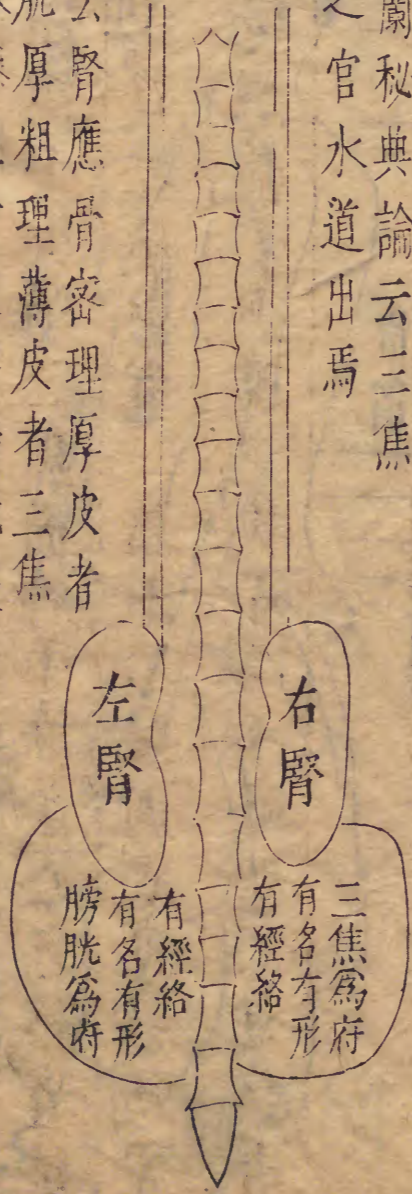 蘭秘典論云三焦
之官水道出焉
右腎
三焦爲府
有名有形
有經絡
左腎
有經絡
有名有形
膀胱爲府
云腎應骨宻理厚皮者
胱厚粗理薄皮者三焦